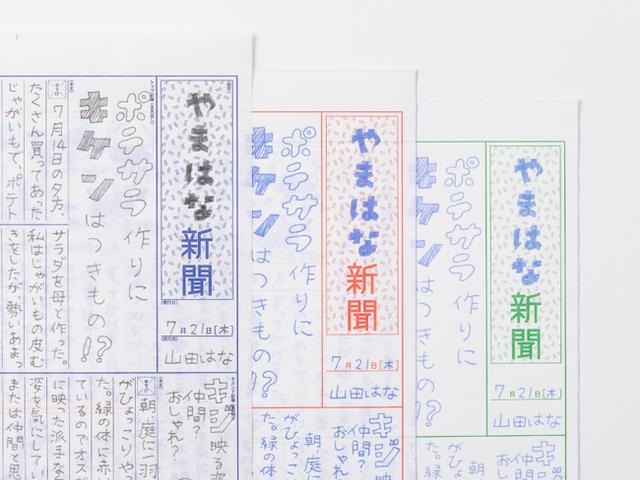 やまはな新聞
7月21日(木)
山田はな
ポテサラ作りに
キケンはつきもの!?
7月14日の夕方、
たくさん買ってあった
じゃがいもで、ポテト
サラダを母と作った。
私はじゃがいもの皮む
きをしたが、勢いあまっ
キジ映る姿
仲間?
おしゃれ?
朝、庭に一羽
がひょっこりやっ
た。緑の体に赤い
ているのでオスだ
に映った派手な
姿を気にしてい
または仲間と思
やまはな新聞
7月21日(木)
山田はな
ポテサラ作りに
キケンはつきもの!?
キジ映る
仲間?
おしゃれ
朝、庭に
がひょこ
た。緑の体
やまはな新聞
7月21日(木)
山田はな
ポテサラ作りに
キケンはつきもの!?
キジ
仲間?
おし
朝
がひょ
た。緑